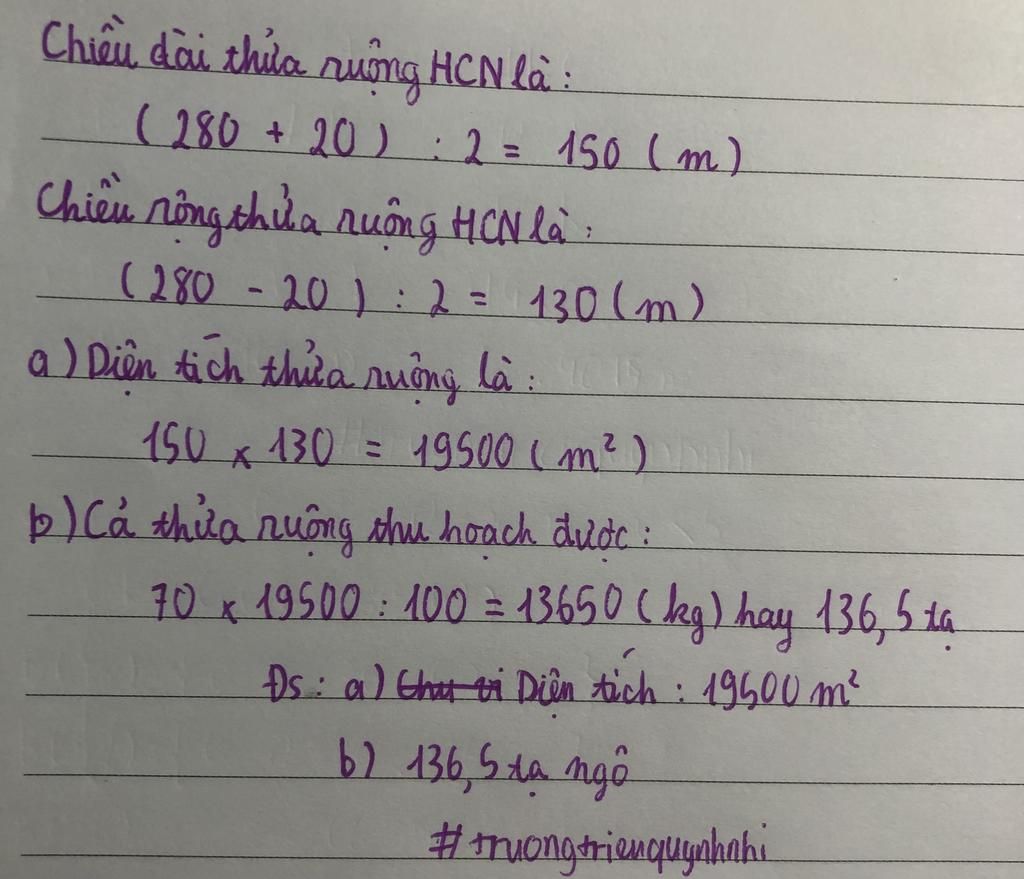 Chiều dài thửa ruộng HCN là:
(280 + 20) : 2 = 150 (m)
Chiều rộng thửa ruộng HCN là:
(280 - 20) : 2 = 130 (m)
a) Diện tích thửa ruộng là:
150 x 130 = 19500 (m²)
b) Cả thửa ruộng thu hoạch được:
70 x 19500 : 100 = 13650 (kg) hay 136,5 tạ
Đs: a) Chu vi Diện tích : 19500 m²
b) 136,5 tạ ngô
#truongtrienquynhnhi